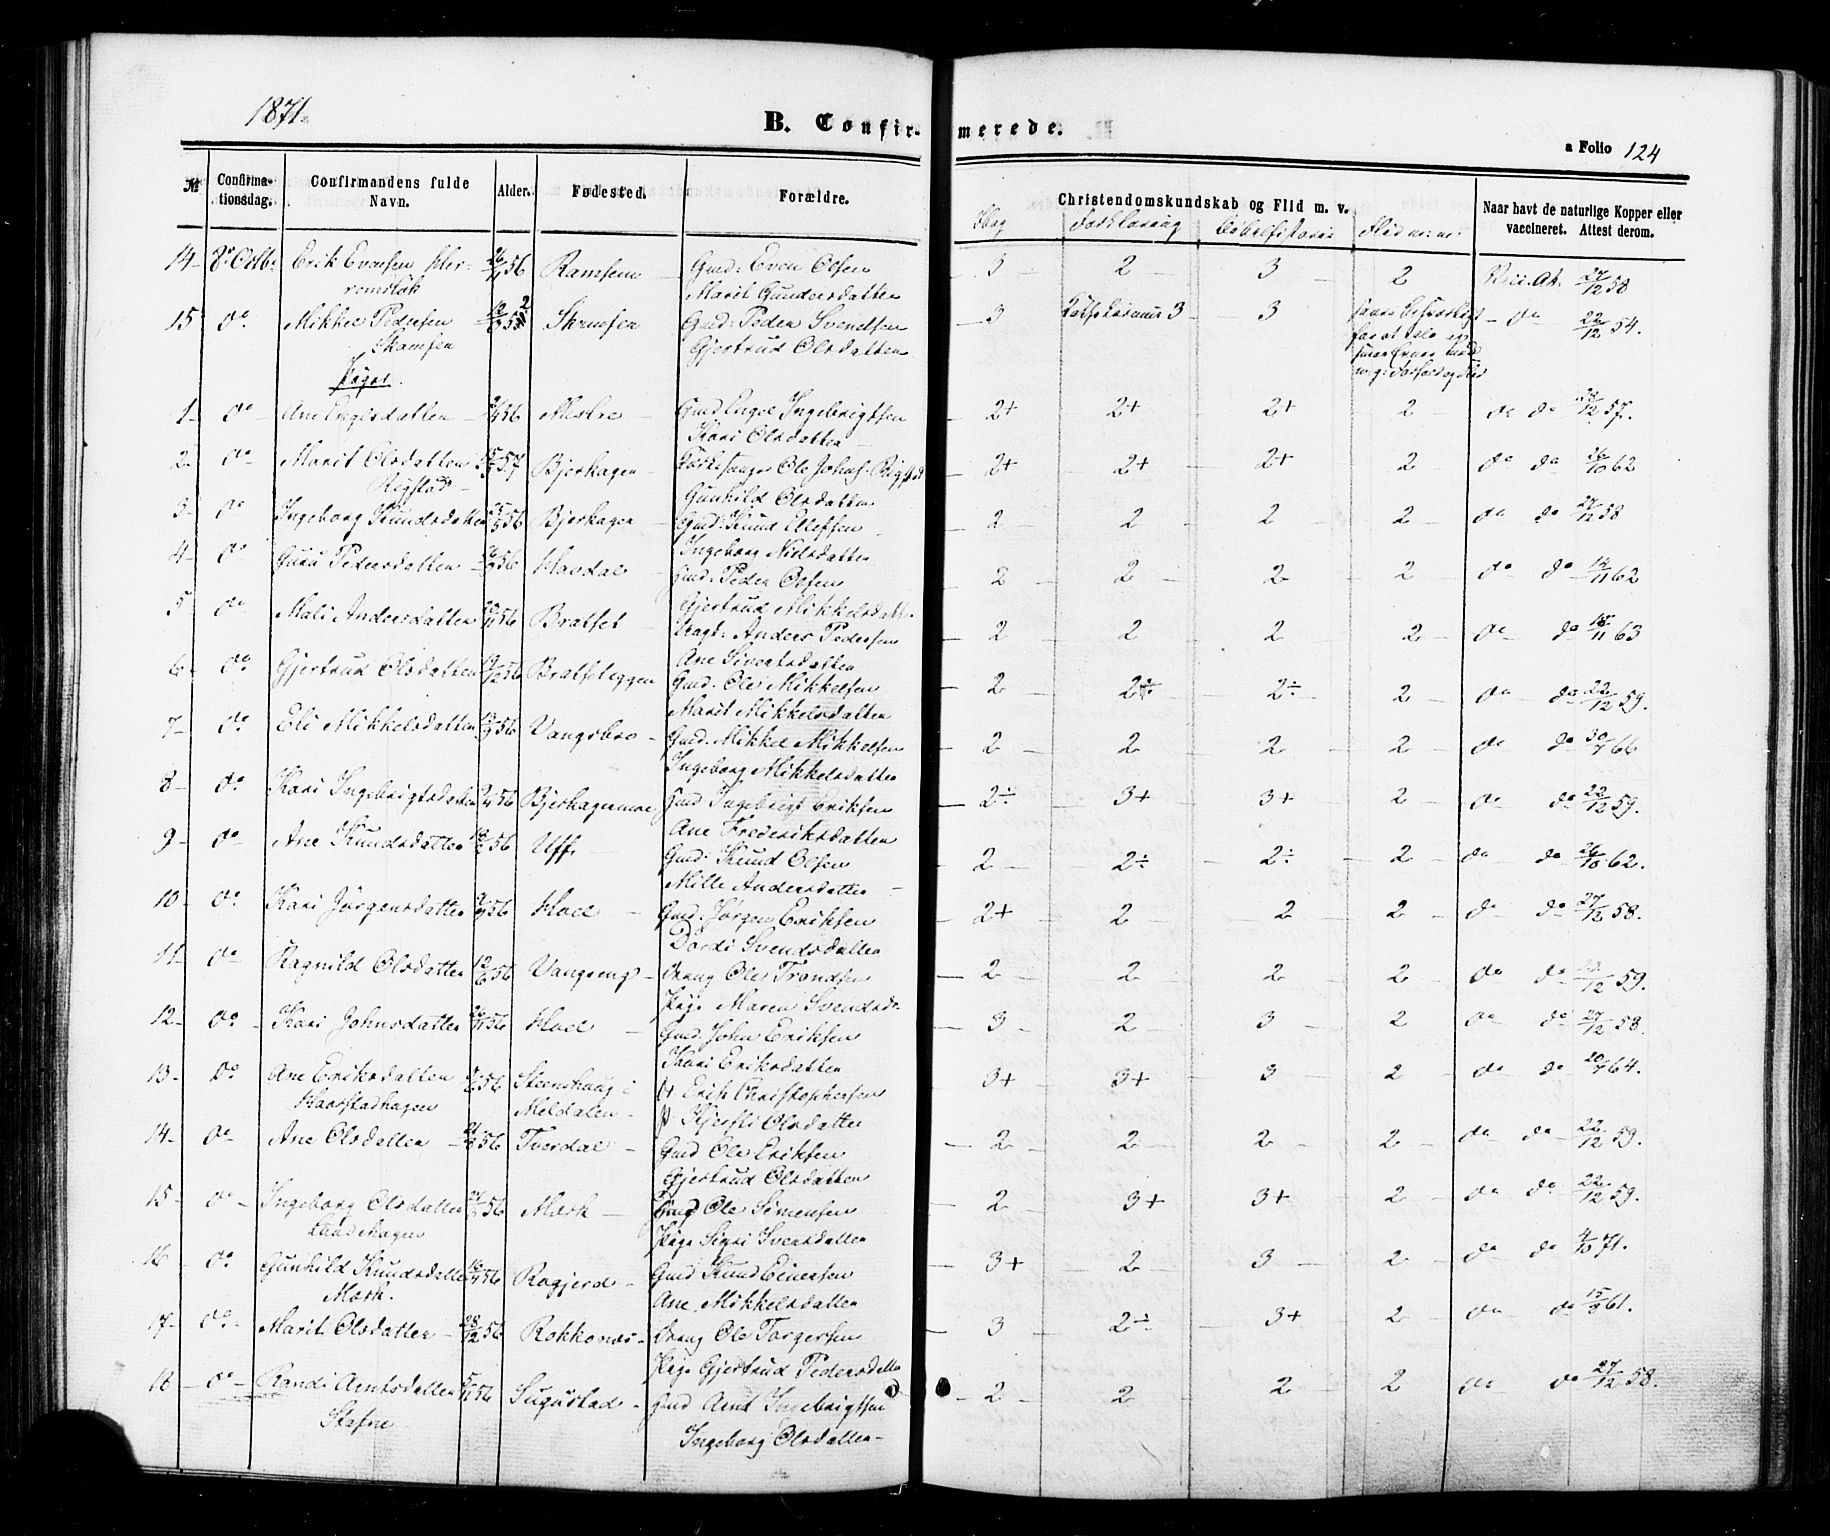 1871.
B. Confir- merede.
a Folio 124
№ Confirmationsdag. Confirmandens fulde Navn. Alder. Fødested. Forældre. Christendomskundskab og Flid m. v. Naar havt de naturlige Kopper eller vaccineret. Attest derom.
Forklaring Bibelhistorie Flid m: m:
14 - 8de Octbr Erik Evensen 56 Ramsem Gmd: Even Olsen 3 2 3 2 Vacc. At. 27/12 58
Marit Gundersdatter
15 do Mikkel Pedersen Gmd: Peder Svendsen 3 3 3 do 22/12 54.
Gjertrud Olsdatter
1 - do - Ane Engelsdatter 56 Gmd Engel Ingebrigtsen 2+ 2+ 2+ 2 do do 57.
Kari Olsdatter
2 - do Marit Olsdatter 57 Bjerhagen Kirkesanger Ole Johns. 2+ 2+ 2+ 2 do do 26/10 62
Rigstad Gunhild Olsdatter
3 - do Ingeborg Knudsdatter 56 Bjerhagen Gmd: Knud Ellefsen 2 2 2 2 do do 27/12 58
Ingeborg Nielsdatter
4 - do Guru Pedersdatter 56 Havdal Gmd: Peder Olsen 2 2 2 2 do do 14/11 62
Gjertrud Mikkelsdatt.
5 do Mali Andersdatter 56 Bratset Anders Pedersen 2 2 2 2 do do 18/11 63
Ane Sivertsdatter
6 - do Gjertrud Olsdatter 56 Bratseteggen Gmd: Ole Mikkelsen 2 2÷ 2÷ 2 do do 22/12 59.
Marit Mikkelsdatter
7 - do Eli Mikkelsdatter 56 Vangsbro Gmd. Mikkel Mikkelsen 2 2 2 2 do do 30/7 66
Ingeborg Mikkelsdatter
8 - do Kari Ingebrigtsdatter 56 Bjerhagenmoe Gmd Ingebrigt Eriksen 2÷ 3+ 3+ 2 do do 22/12 59.
Ane Frederiksdatter
9 - do Ane Knudsdatter 56 Uff Gmd: Knud Olsen 2 2÷ 2÷ 2 do do 26/10 62.
Mille Andersdatter
10 - do Kari Jørgensdatter 56 Hoel Gmd. Jørgen Eriksen 2+ 2 2 2 do do 27/12 58.
Dordi Svendsdatter
11 - do Ragnild Olsdatter 12/6 56 Vangseng Ole Trondsen 2 2 2 2 do do 22/12 59.
Pige Maren Svendsdr
12 - do Kari Johnsdatter 56 Hoel Gmd. John Eriksen 3 2 3 2 do do 27/12 58.
Kari Eriksdatter
13 - do Ane Eriksdatter 56 Steenshaug i Erik Christophersen 3+ 3+ 3 2 do do 20/7 64.
Haarstadhagen Meldalen Kjersti Olsdatter
14 - do Ane Olsdatter 56 Tverdal Gmd Ole Eriksen 2 2 2 2 do do 22/12 59.
Gjertrud Olsdatter
15 - do Ingeborg Olsdatter 56 Mærk Ole Simensen 2 3+ 3+ 2 do do 22/12 59.
Pige Sigri Svensdatter
16 do Gunhild Knudsdatter 56 Rogjerd Gmd Knud Einersen 3+ 2 3 2 do do 4/10 71.
Mærk. Ane Mikkelsdatter
17 - do - Marit Olsdatter 28/12 56 Rokkones Ole Torgersen 3 2÷ 3+ 2 do do 61.
Pige Gjertrud Pedersdatter
18 - do - Randi Arntsdatter 56 Sugustad Gmd Arnt Ingebrigtsen 2 2 2 2 do do 27/12 58.
Stafne Ingeborg Olsdatter